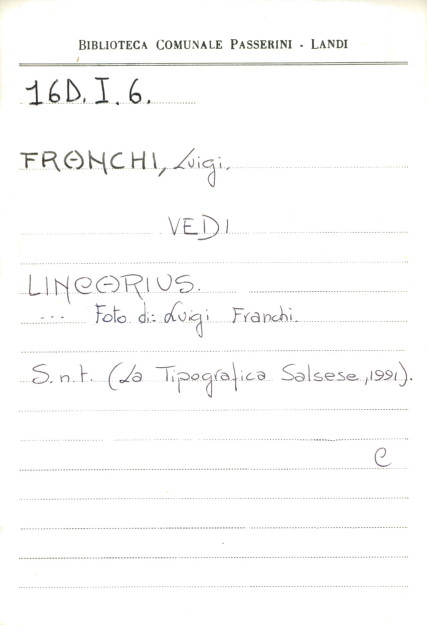 BIBLIOTECA COMUNALE PASSERINI - LANDI
16D.I.6.
FRANCHI, Luigi.
VEDI
LINCARIUS.
... Foto di: Luigi Franchi.
S.n.t. (La Tipografica Salsese, 1991).
C